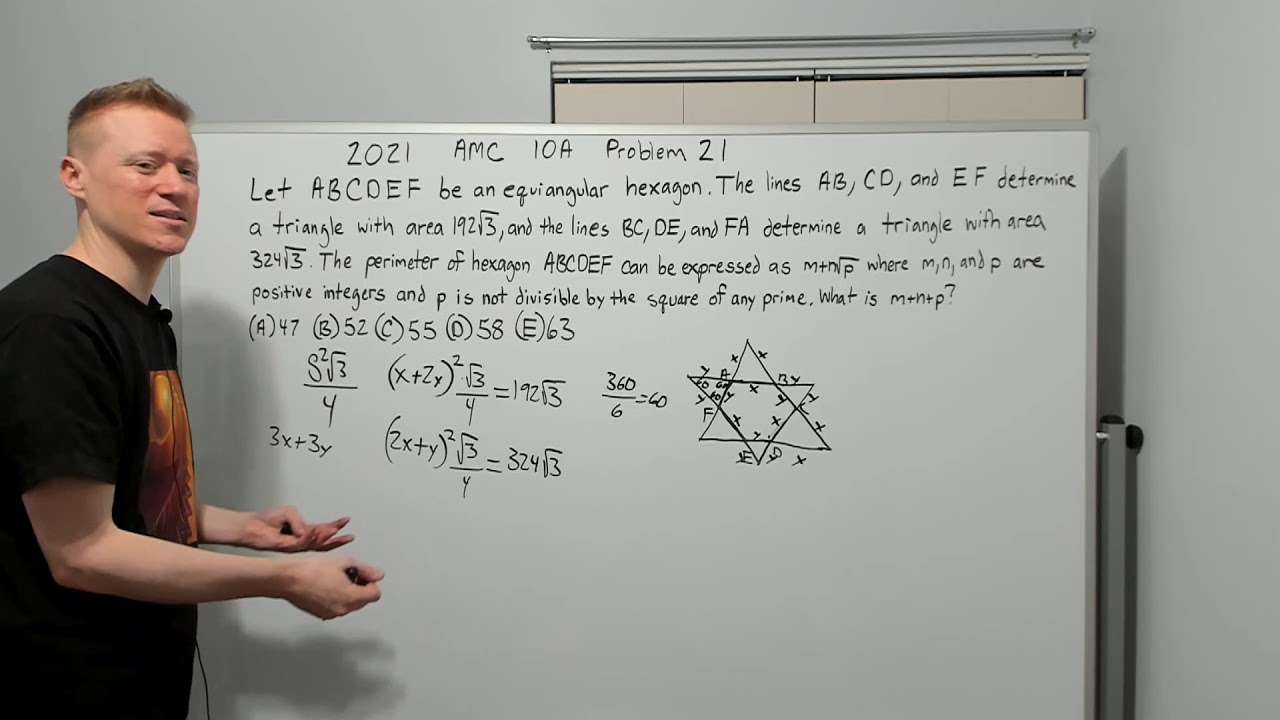 2021 AMC 10A Problem 21
Let ABCDEF be an equiangular hexagon. The lines AB, CD, and EF determine
a triangle with area 192√3, and the lines BC, DE, and FA determine a triangle with area
324√3. The perimeter of hexagon ABCDEF can be expressed as m+n√p where m,n, and p are
positive integers and p is not divisible by the square of any prime. What is m+n+p?
(A) 47 (B) 52 (C) 55 (D) 58 (E) 63
S²√3/4 (x+2y)²√3/4 = 192√3 360/6 = 60
3x+3y (2x+y)²√3/4 = 324√3
x x
y A B y
60 60 x y
y 60 y y C
F x x x
y
E y D x